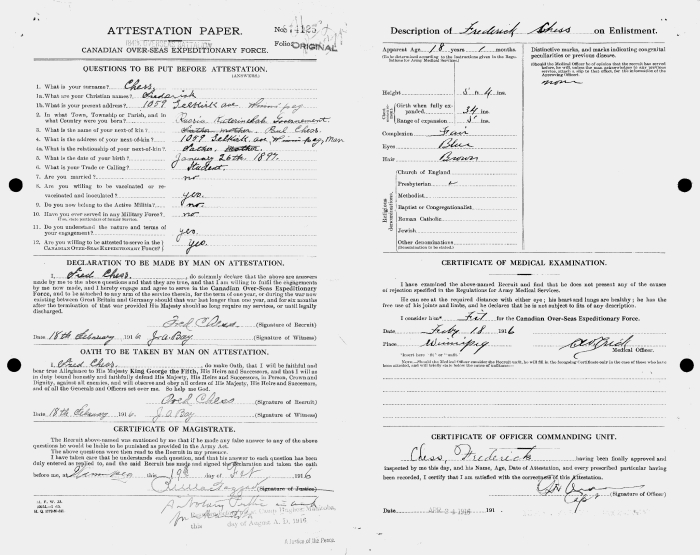 ATTESTATION PAPER.
No.
Folio.
ORIGINAL
CANADIAN OVER-SEAS EXPEDITIONARY FORCE.
QUESTIONS TO BE PUT BEFORE ATTESTATION.
(ANSWERS)
1. What is your surname? Chess.
1a. What are your Christian names? Frederick
1b. What is your present address? 1059 Selkirk ave Winnipeg
2. In what Town, Township or Parish, and in what Country were you born? Russia
3. What is the name of your next-of-kin? Paul Chess.
4. What is the address of your next-of-kin? 1059 Selkirk ave Winnipeg, Man
4a. What is the relationship of your next-of-kin? Father.
5. What is the date of your birth? January 26th. 1897.
6. What is your Trade or Calling? Student.
7. Are you married? no
8. Are you willing to be vaccinated or re-vaccinated and inoculated? yes.
9. Do you now belong to the Active Militia? no.
10. Have you ever served in any Military Force? no
If so, state particulars of former Service.
11. Do you understand the nature and terms of your engagement? yes.
12. Are you willing to be attested to serve in the CANADIAN OVER-SEAS EXPEDITIONARY FORCE? Yes.
DECLARATION TO BE MADE BY MAN ON ATTESTATION.
I, Fred Chess, do solemnly declare that the above are answers
made by me to the above questions and that they are true, and that I am willing to fulfil the engagements
by me now made, and I hereby engage and agree to serve in the Canadian Over-Seas Expeditionary
Force, and to be attached to any arm of the service therein, for the term of one year, or during the war now
existing between Great Britain and Germany should that war last longer than one year, and for six months
after the termination of that war provided His Majesty should so long require my services, or until legally
discharged.
Fred Chess (Signature of Recruit)
Date 18th February 1916 J. A. Bay (Signature of Witness)
OATH TO BE TAKEN BY MAN ON ATTESTATION.
I, Fred Chess, do make Oath, that I will be faithful and
bear true Allegiance to His Majesty King George the Fifth, His Heirs and Successors, and that I will as
in duty bound honestly and faithfully defend His Majesty, His Heirs and Successors, in Person, Crown and
Dignity, against all enemies, and will observe and obey all orders of His Majesty, His Heirs and Successors,
and of all the Generals and Officers set over me. So help me God.
Fred Chess (Signature of Recruit)
Date 18th February 1916 J. A. Bay (Signature of Witness)
CERTIFICATE OF MAGISTRATE.
The Recruit above-named was cautioned by me that if he made any false answer to any of the above
questions he would be liable to be punished as provided in the Army Act.
The above questions were then read to the Recruit in my presence.
I have taken care that he understands each question, and that his answer to each question has been
duly entered as replied to, and the said Recruit has made and signed the declaration and taken the oath
before me, at Winnipeg this day of Feb 1916
(Signature of Justice)
A Notary Public
this day of August A. D. 1916
Description of Frederick Chess on Enlistment.
Apparent Age 18 years 1 months.
(To be determined according to the instructions given in the Regulations for Army Medical Services.)
Distinctive marks, and marks indicating congenital peculiarities or previous disease.
none
Height 5 ft. 4 ins.
Girth when fully expanded 34 ins.
Range of expansion 3 ins.
Complexion Fair
Eyes Blue
Hair Brown
Religious denominations.
Church of England
Presbyterian
Methodist
Baptist or Congregationalist
Roman Catholic
Jewish
Other denominations
(Denomination to be stated.)
CERTIFICATE OF MEDICAL EXAMINATION.
I have examined the above-named Recruit and find that he does not present any of the causes
of rejection specified in the Regulations for Army Medical Services.
He can see at the required distance with either eye; his heart and lungs are healthy; he has the
free use of his joints and limbs, and he declares that he is not subject to fits of any description.
I consider him* Fit for the Canadian Over-Seas Expeditionary Force.
Date Feby 18 1916
Place Winnipeg
Medical Officer.
*Insert here "fit" or "unfit."
CERTIFICATE OF OFFICER COMMANDING UNIT.
Chess, Frederick having been finally approved and
inspected by me this day, and his Name, Age, Date of Attestation, and every prescribed particular having
been recorded, I certify that I am satisfied with the correctness of this Attestation.
(Signature of Officer)
Capt
Date APR 24 1916 191